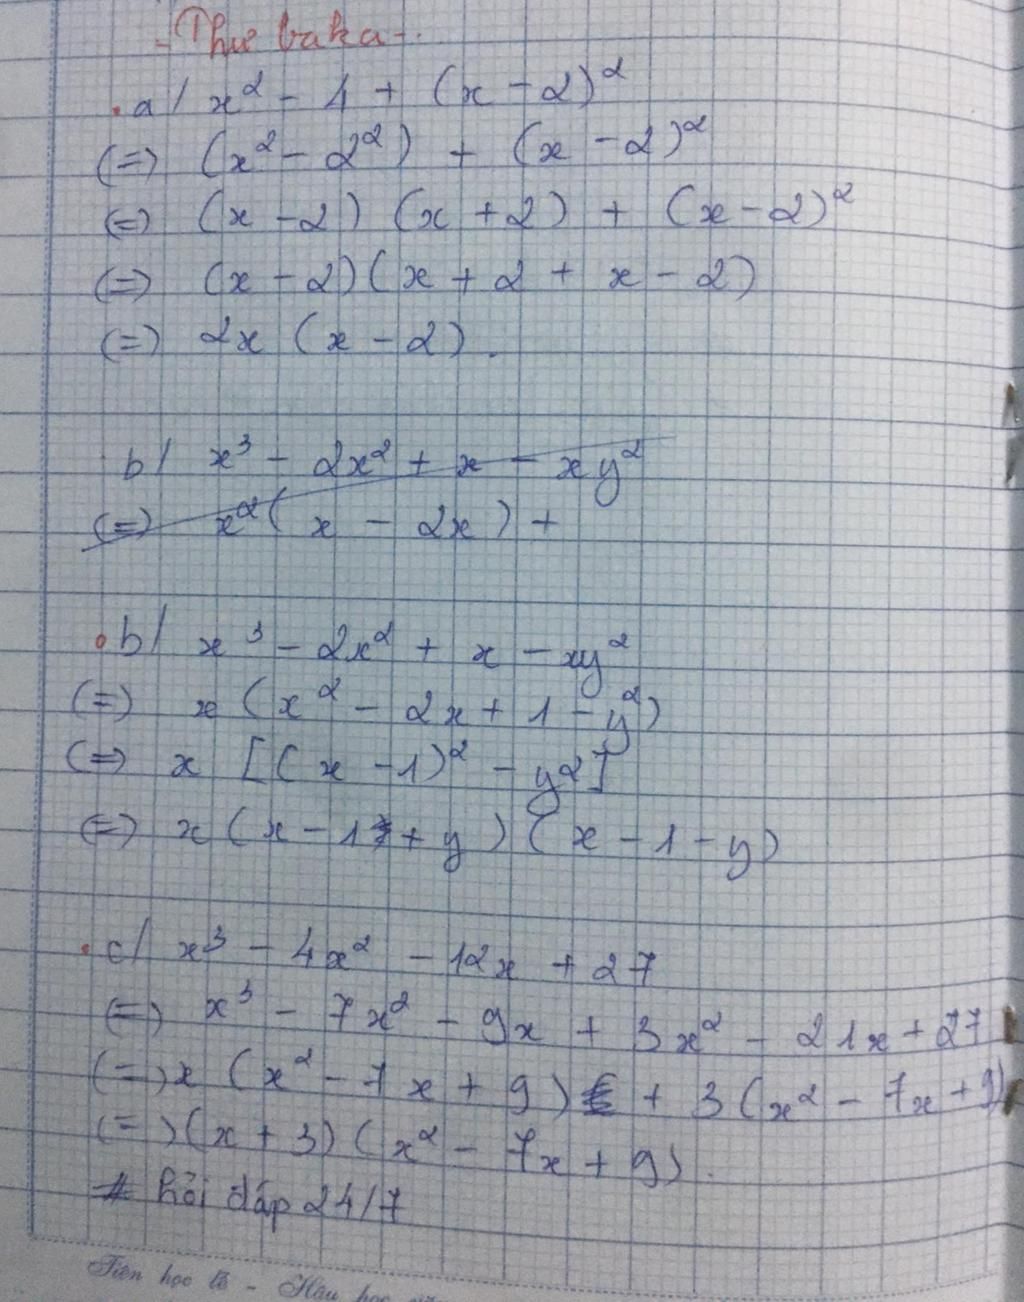 - Thư baka -.
. a / x² - 4 + (x - 2)²
(=) (x² - 2²) + (x - 2)²
(=) (x - 2) (x + 2) + (x - 2)²
(=) (x - 2)(x + 2 + x - 2)
(=) 2x (x - 2).
b / x³ - 2x² + x - xy²
(=) x²( x - 2x ) +
. b / x³ - 2x² + x - xy²
(=) x (x² - 2x + 1 - y²)
(=) x [(x - 1)² - y2]
(=) x (x - 1 + y ) (x - 1 - y)
. c / x³ - 4x² - 12x + 27
(=) x³ - 7x² - 9x + 3x² - 21x + 27
(=) x (x² - 7x + 9) + 3 (x² - 7x + 9)
(=) (x + 3) (x² - 7x + 9).
# hỏi đáp 24/7
Tiên học lễ - Hậu học